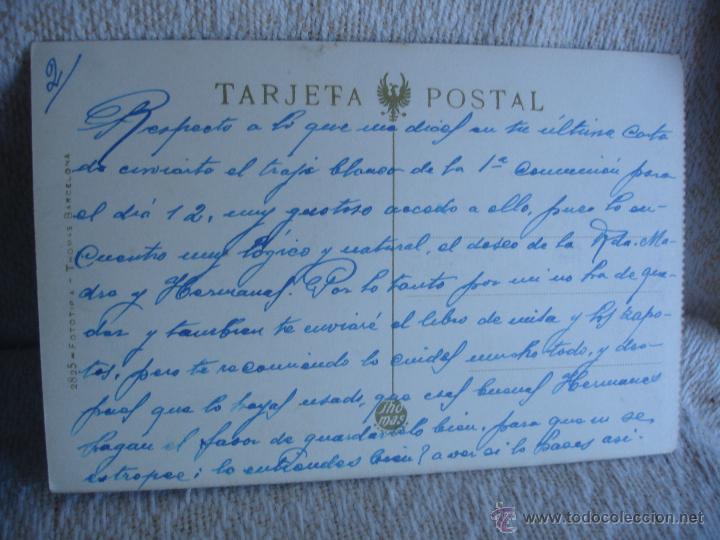 2/
TARJETA POSTAL
Respecto a lo que me dices en tu última carta
de enviarte el traje blanco de la 1ª Comunión para
el dia 12, muy gustoso accedo a ello, pues lo en-
cuentro muy lógico y natural, el deseo de la Rda. Ma-
dre y Hermanas. Por lo tanto por mi no ha de que-
dar y tambien te enviaré el libro de misa y los zapa-
tos, pero te recomiendo lo cuides mucho todo, y des-
pues que lo hayas usado, que esas buenas Hermanas
hagan el favor de guardártelo bien, para que no se
estropee; lo entiendes bien? a ver si lo haces asi.
2825 - FOTOTIPIA - THOMAS BARCELONA
Thomas
todocoleccion
www.todocoleccion.net